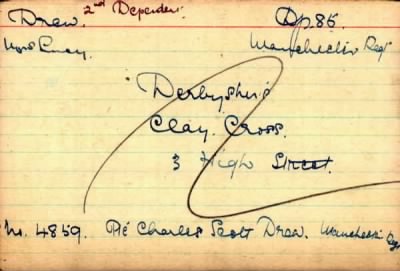 2nd Dependent
Drew. Dp. 86.
Mrs Emey. Manchester Regt
Derbyshire
Clay Cross.
3 High Street.
No. 4859. Pte Charles Scott Drew. Manchester Regt